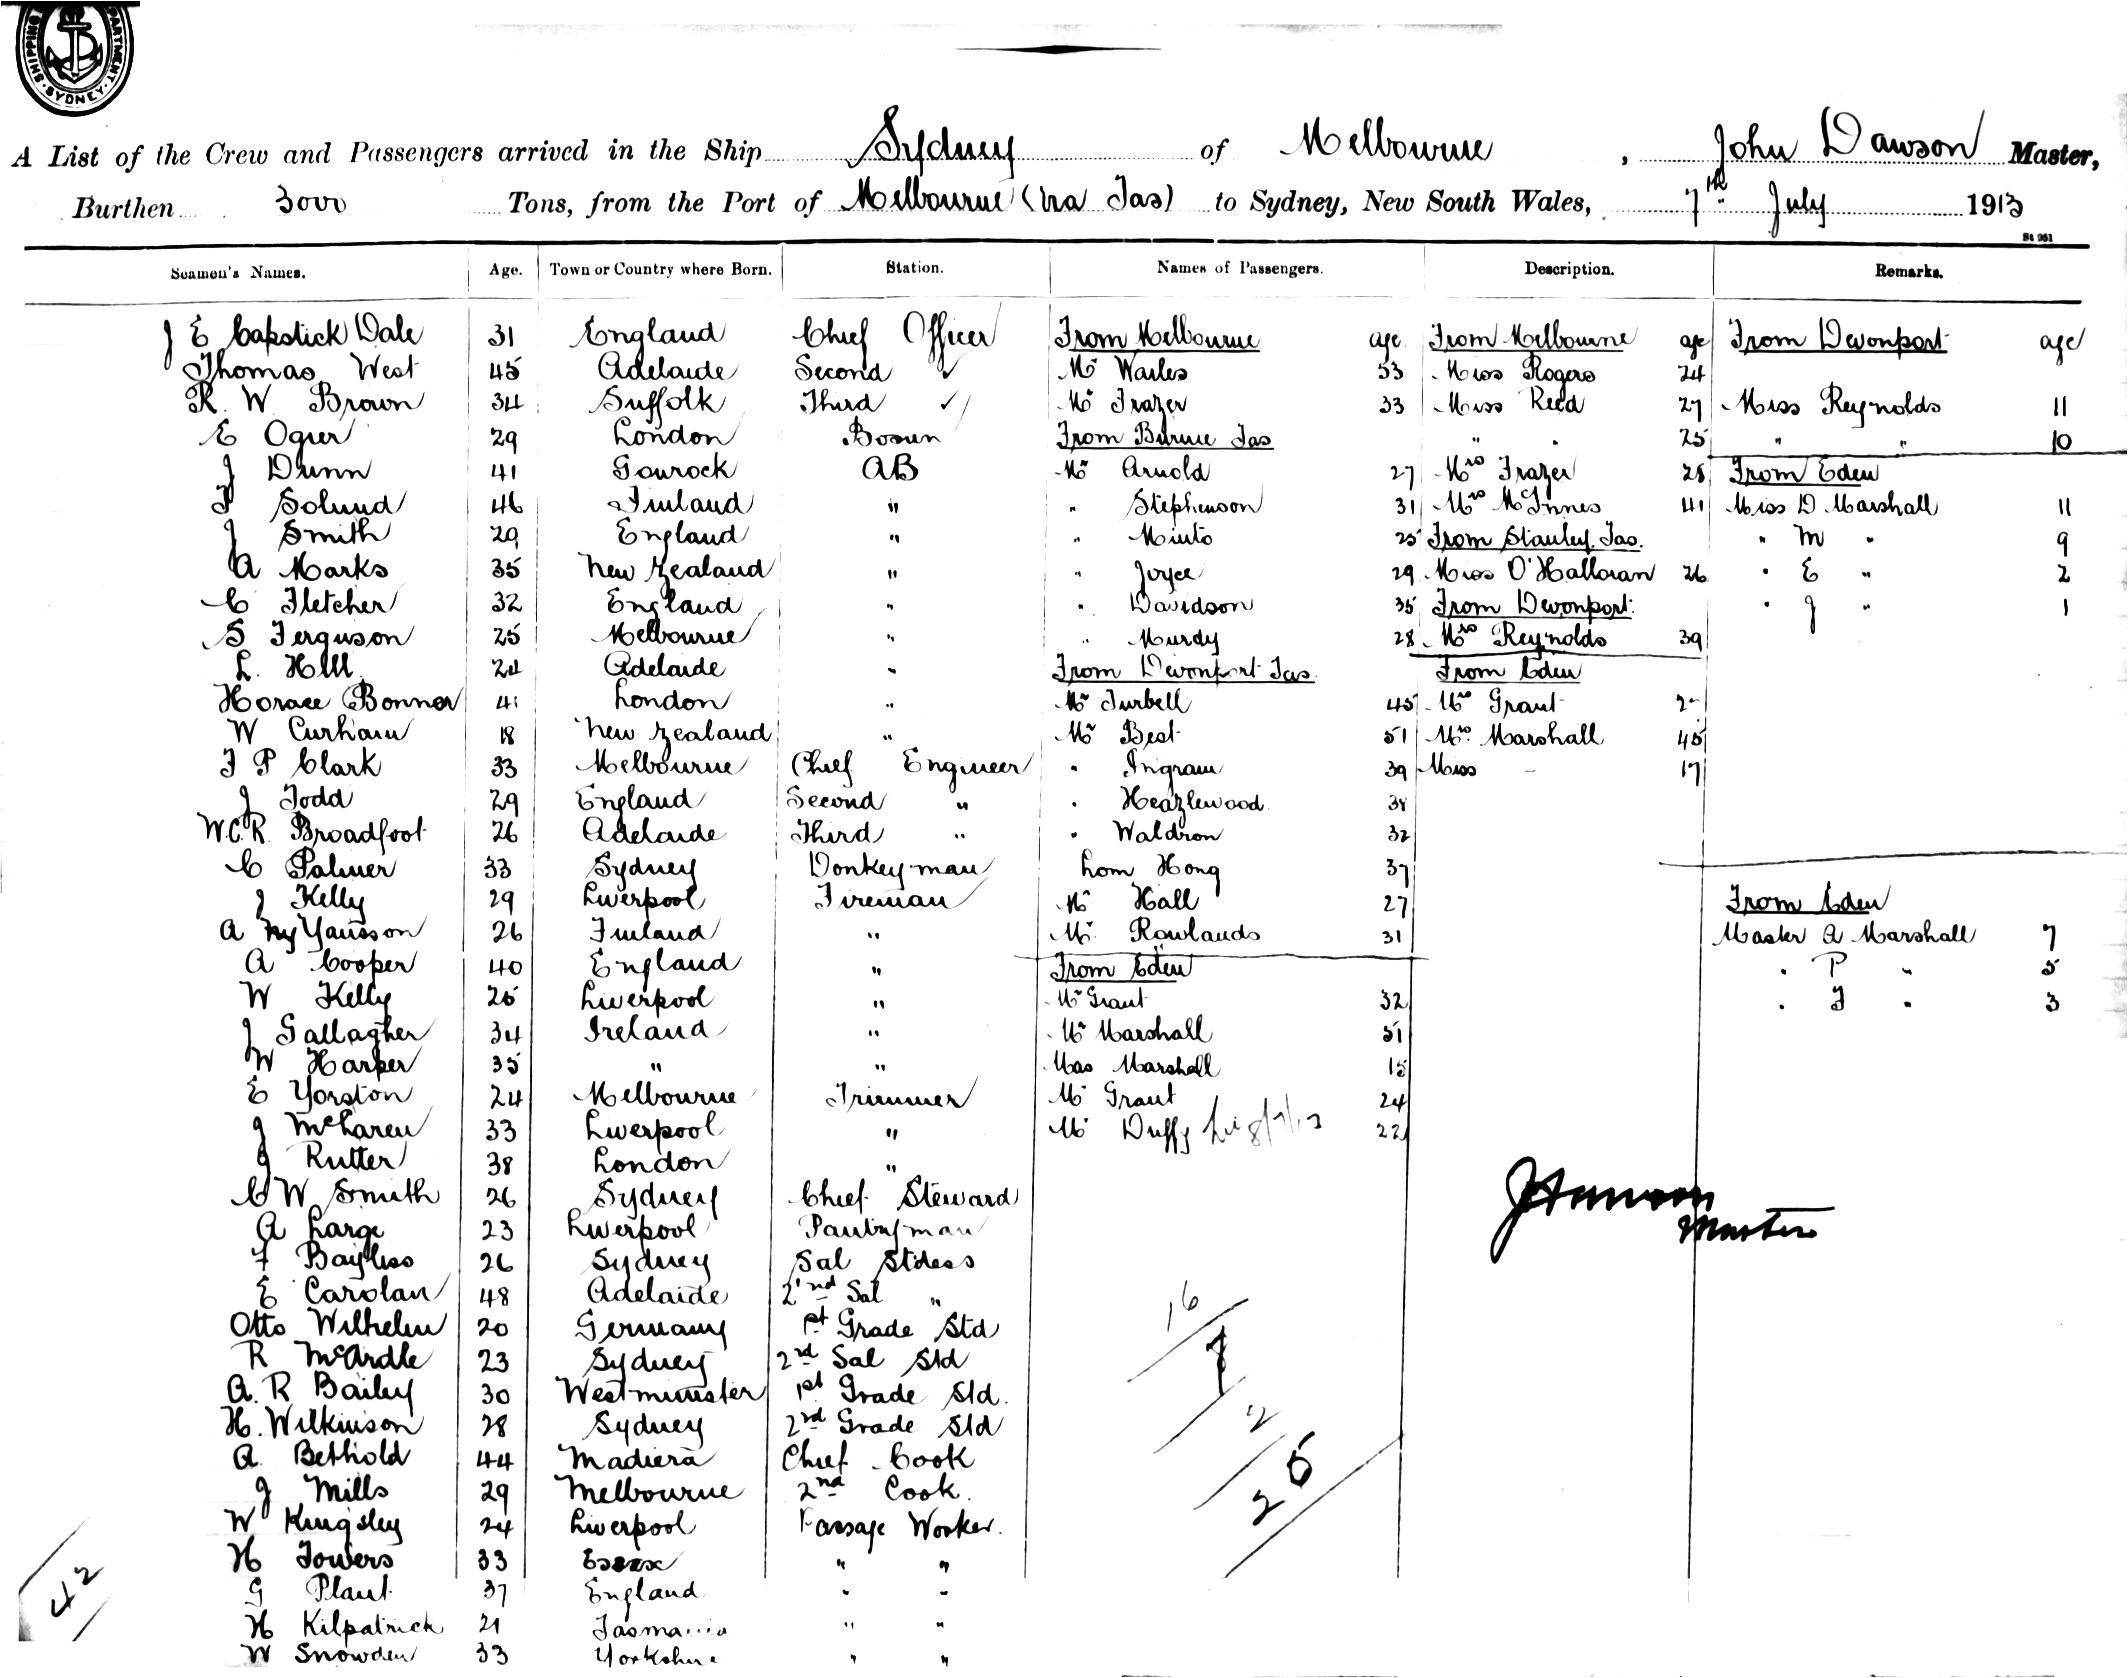 SHIPPING DEPARTMENT SYDNEY
A List of the Crew and Passengers arrived in the Ship Sydney of Melbourne, John Dawson Master,
Burthen 3000 Tons, from the Port of Melbourne (via Tas) to Sydney, New South Wales, 7th July 1913
St 961
Seamen's Names. Age. Town or Country where Born. Station. Names of Passengers. Description. Remarks.
J E Capstick Dale 31 England Chief Officer From Melbourne age From Melbourne age From Devonport age
Thomas West 45 Adelaide Second ✓ Mr Wailes 53 Miss Rogers 24
R. W Brown 34 Suffolk Third ✓ Mr Frazer 33 Miss Reed 27 Miss Reynolds 11
E Ogier 29 London Bosun From Burnie Tas " " 25 " " 10
J Dunn 41 Gourock AB Mr Arnold 27 Mrs Frazer 28 From Eden
F Solund 46 Finland " " Stephenson 31 Mrs McInnes 41 Miss D Marshall 11
J Smith 29 England " " Minto 25 From Stanley Tas. " M " 9
A Marks 35 New Zealand " " Joyce 29 Miss O'Halloran 26 " E " 2
C Fletcher 32 England " " Davidson 35 From Devonport. " J " 1
S Ferguson 25 Melbourne " " Murdy 28 Mrs Reynolds 39
L. Hill 24 Adelaide " From Devonport Tas From Eden
Horace Bonner 41 London " Mr Turbell 45 Mrs Grant
W Curham 18 New Zealand " Mr Best 51 Mrs Marshall 45
F P Clark 33 Melbourne Chief Engineer " Ingram 39 Miss - 17
J Todd 29 England Second " " Heazlewood 38
W.C.R. Broadfoot 26 Adelaide Third " " Waldron 32
C Palmer 33 Sydney Donkeyman Lom Hong 37
J Kelly 29 Liverpool Fireman Mr Hall 27 From Eden
A Ny Yansson 26 Finland " Mr Rowlands 31 Master A Marshall 7
A Cooper 40 England " From Eden " P " 5
W Kelly 25 Liverpool " Mr Grant 32 " F " 3
J Gallagher 34 Ireland " Mr Marshall 51
W Harper 35 " " Mas Marshall 15
E Yorston 24 Melbourne Trimmer Mr Grant 24
J McLaren 33 Liverpool " Mr Duffy 8/7/13 22
J Rutter 38 London "
C W Smith 26 Sydney Chief Steward
A Large 23 Liverpool Pantryman
F Bayliss 26 Sydney Sal Stdess
E Carolan 48 Adelaide 2nd Sal "
Otto Wilhelm 20 Germany 1st Grade Std
R McArdle 23 Sydney 2nd Sal Std
A. R Bailey 30 Westminster 1st Grade Std.
H. Wilkinson 28 Sydney 2nd Grade Std
A. Bethold 44 Madiera Chief Cook
J Mills 29 Melbourne 2nd Cook.
W Kingsley 24 Liverpool Passage Worker.
H Towers 33 Essex " "
G Plant 37 England " "
H Kilpatrick 21 Tasmania " "
W Snowden 33 Yorkshire " "
J Dawson
Master
16
7
2
25
42